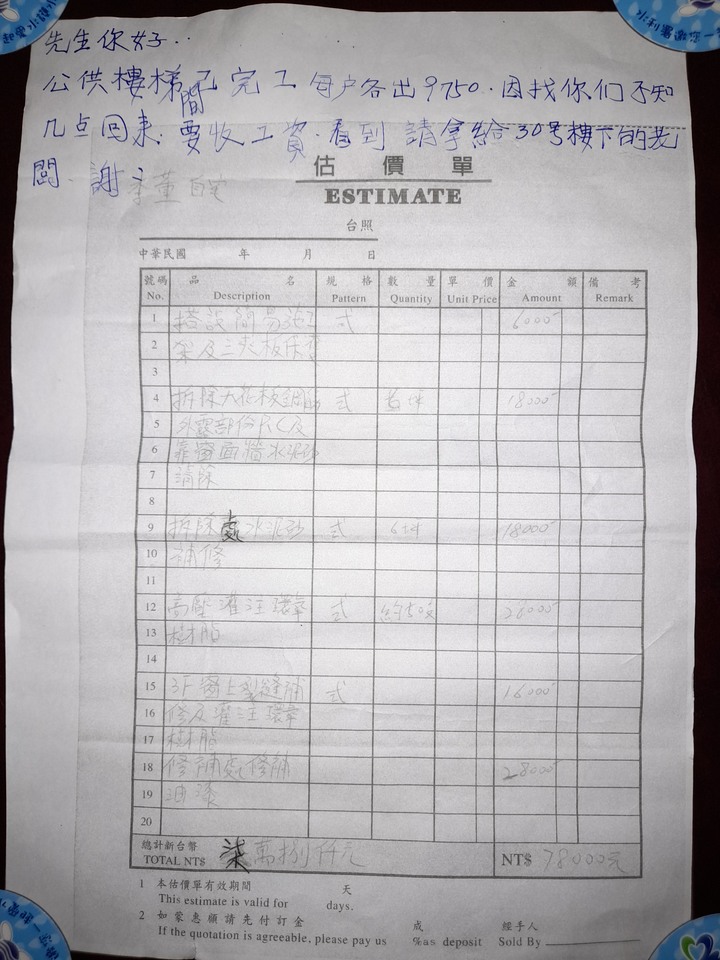 先生你好..
公供樓梯間已完工每户各出9750.因找你们不知
几点回来.要收工資.看到請拿給30号樓下的老
闆.謝
估價單
ESTIMATE
台照
中華民國 年 月 日
號碼 品名 規格 數量 單價 金額 備考
No. Description Pattern Quantity Unit Price Amount Remark
1 搭設簡易施工 式 6000
2 架及三夾板保
3
4 拆除天花板鋼筋 式 18000
5 外露部份R.C及
6 靠窗面牆水泥砂
7 清除
8
9 拆除處水泥砂 式 6坪 18000
10 補修
11
12 高壓灌注環氧 式 28000
13 樹脂
14
15 3F窗上裂縫補 式 16000
16 修及灌注環氧
17 樹脂
18 修補處修補 28000
19 油漆
20
總計新台幣 柒萬捌仟元
TOTAL NT$ NT$ 78000元
1 本估價單有效期間 天
This estimate is valid for days.
2 如蒙惠顧請先付訂金 成 經手人
If the quotation is agreeable, please pay us %as deposit Sold By